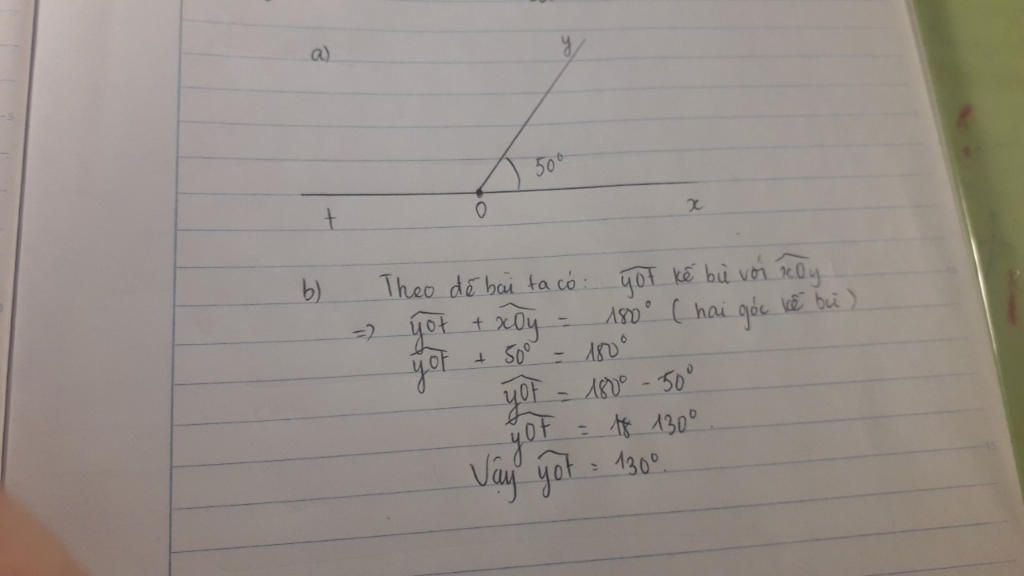 a)
y
50°
t
O
x
b) Theo đề bài ta có: yOt kề bù với xOy
=> yOt + xOy = 180° (hai góc kề bù)
yOt + 50° = 180°
yOt = 180° - 50°
yOt = 130°.
Vậy yOt = 130°.